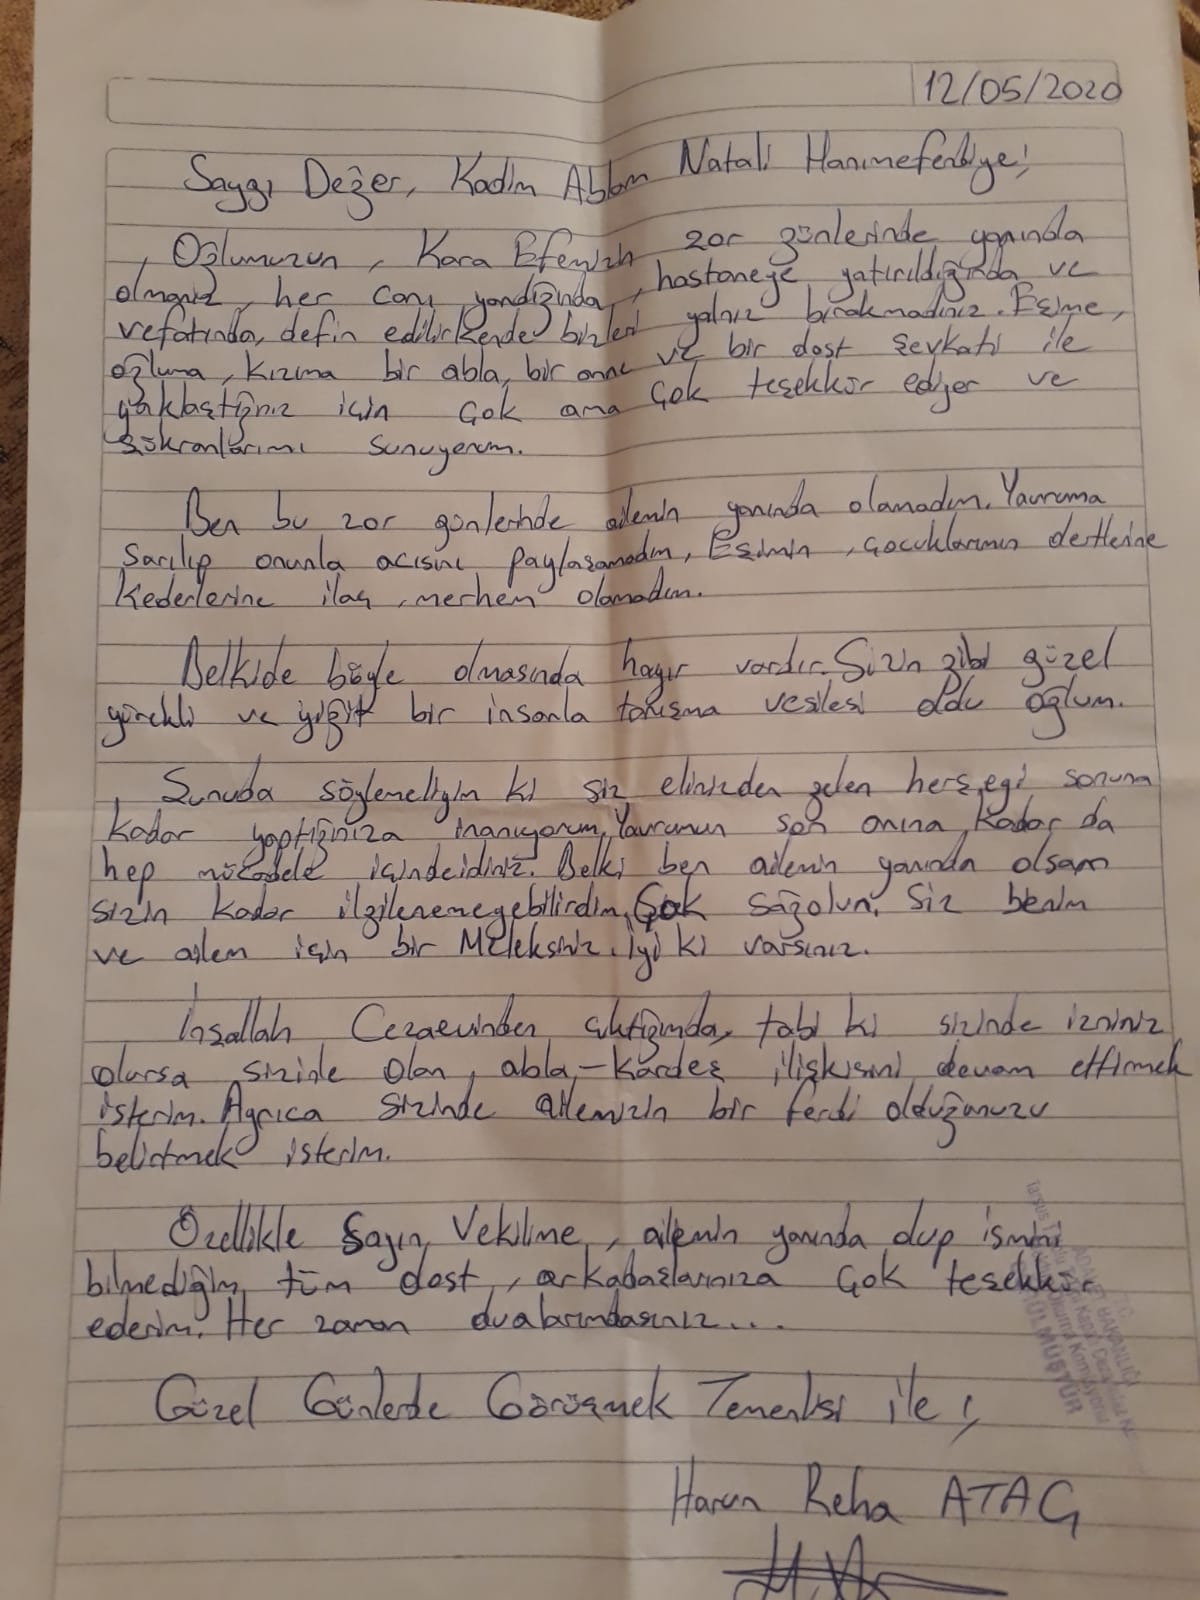 12/05/2020
Saygı Değer, Kadim Ablam Natali Hanımefendiye;
Oğlumuzun, Kara Efemizin zor günlerinde yanında
olmanız, her canı yandığında, hastaneye yatırıldığında ve
vefatında, defin edilirkende bizleri yalnız bırakmadınız. Eşime,
oğluma, kızıma bir abla, bir anne ve bir dost şevkati ile
yaklaştığınız için çok ama çok teşekkür ediyer ve
şükranlarımı sunuyorum.
Ben bu zor günlerinde ailemin yanında olamadım. Yavruma
sarılıp onunla acısını paylaşamadım, Eşimin, çocuklarımın dertlerine
kederlerine ilaç, merhem olamadım.
Belkide böyle olmasında hayır vardır. Sizin gibi güzel
yürekli ve yiğit bir insanla tanışma vesilesi oldu oğlum.
Şunuda söylemeliyim ki siz elinizden gelen herşeyi sonuna
kadar yaptığınıza inanıyorum, Yavrumun son anına kadar da
hep mücadele içindeidiniz. Belki ben ailemin yanında olsam
sizin kadar ilgilenemeyebilirdim. Çok sağolun. Siz benim
ve ailem için bir Meleksiniz. İyi ki varsınız.
İnşallah Cezaevinden çıktığımda, tabi ki sizinde izniniz
olursa sizinle olan, abla-kardeş ilişkisini devam ettirmek
isterim. Ayrıca sizinde ailemizin bir ferdi olduğunuzu
belirtmek isterim.
Özellikle Sayın Vekilime, ailemin yanında olup ismini
bilmediğim tüm dost, arkadaşlarınıza çok teşekkür
ederim. Her zaman dualarımdasınız...
Güzel Günlerde Görüşmek Temenlisi ile;
Harun Reha ATAÇ
T.C.
ADALET BAKANLIĞI